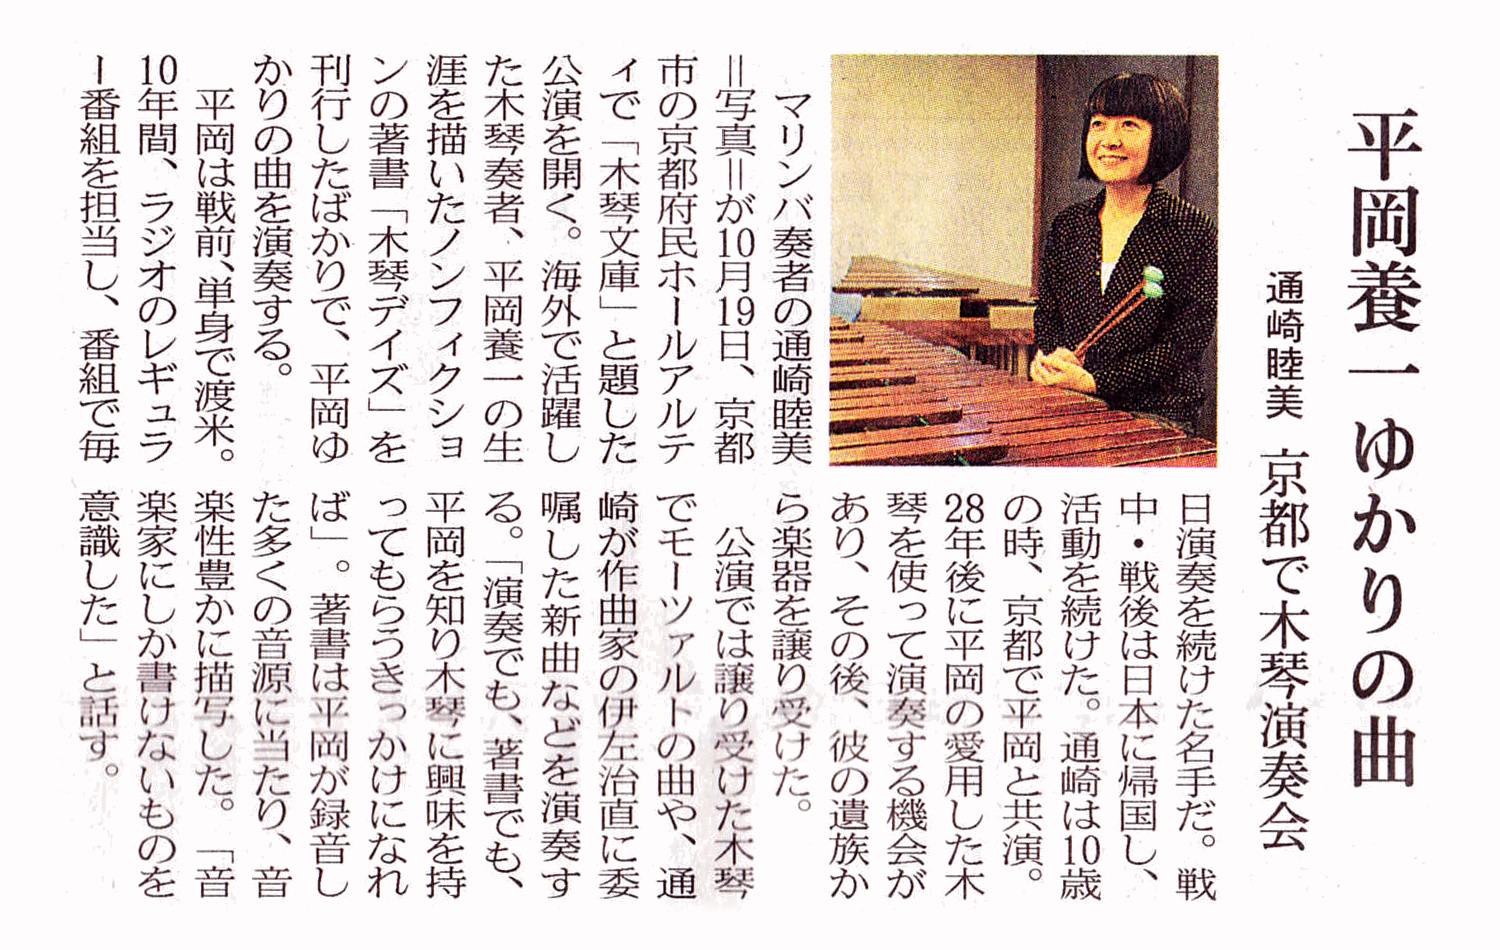 平岡養一ゆかりの曲
通崎睦美 京都で木琴演奏会
マリンバ奏者の通崎睦美
＝写真＝が10月19日、京都
市の京都府民ホールアルテ
ィで「木琴文庫」と題した
公演を開く。海外で活躍し
た木琴奏者、平岡養一の生
涯を描いたノンフィクショ
ンの著書「木琴デイズ」を
刊行したばかりで、平岡ゆ
かりの曲を演奏する。
平岡は戦前、単身で渡米。
10年間、ラジオのレギュラ
ー番組を担当し、番組で毎
日演奏を続けた名手だ。戦
中・戦後は日本に帰国し、
活動を続けた。通崎は10歳
の時、京都で平岡と共演。
28年後に平岡の愛用した木
琴を使って演奏する機会が
あり、その後、彼の遺族か
ら楽器を譲り受けた。
公演では譲り受けた木琴
でモーツァルトの曲や、通
崎が作曲家の伊左治直に委
嘱した新曲などを演奏す
る。「演奏でも、著書でも、
平岡を知り木琴に興味を持
ってもらうきっかけになれ
ば」。著書は平岡が録音し
た多くの音源に当たり、音
楽性豊かに描写した。「音
楽家にしか書けないものを
意識した」と話す。